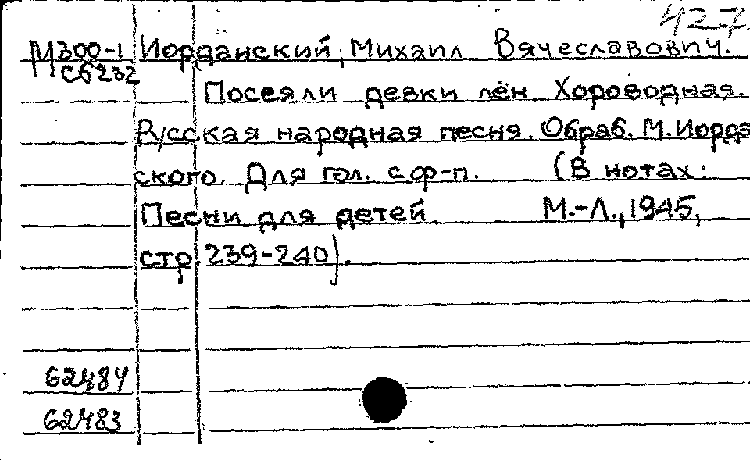 427
М300-1 Иорданский, Михаил Вячеславович.
Сб232
Посеяли девки лён. Хороводная.
Русская народная песня. Обраб. М. Иорда
ского. Для гол. с ф-п. (В нотах:
Песни для детей. М.-Л., 1945,
стр. 239-240).
62484
62483